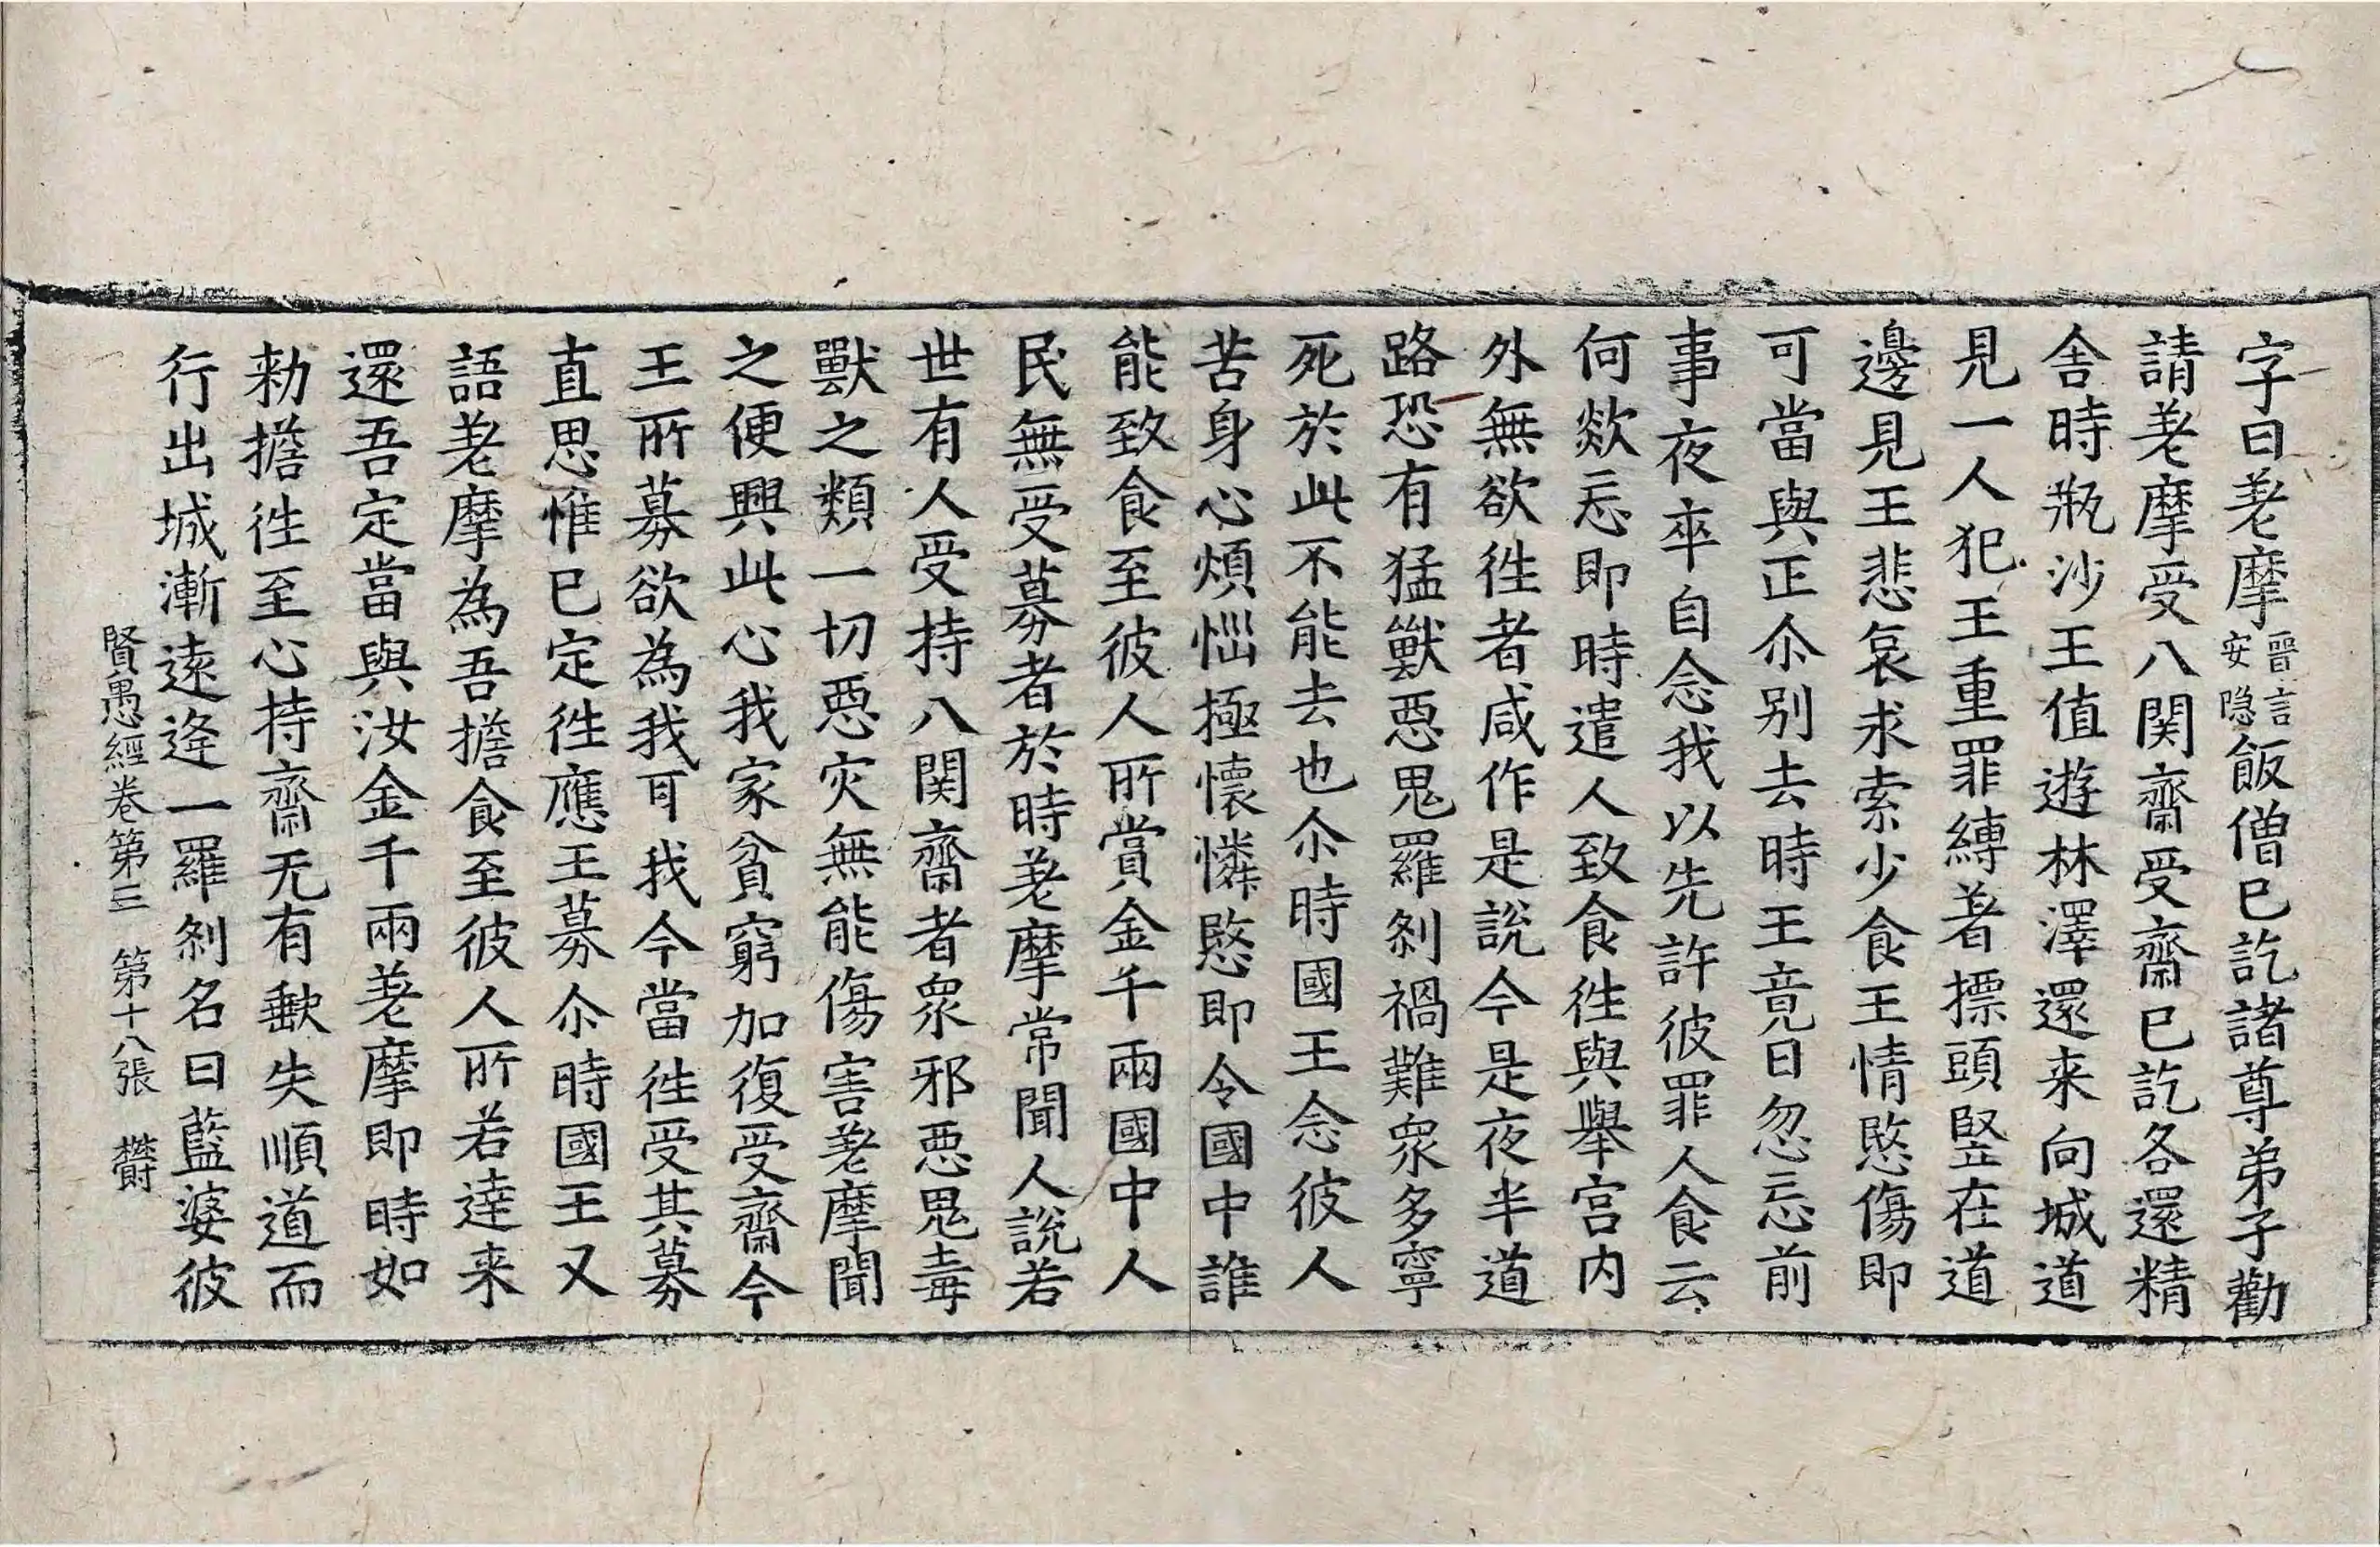 字曰差摩晉言安隐飯僧已訖諸尊弟子勸
請差摩受八関齋受齋已訖各還精
舎時瓶沙王值遊林澤還来向城道
見一人犯王重罪縛著摽頭竪在道
邊見王悲哀求索少食王情愍傷即
可當與正尒别去時王竟日忽忘前
事夜卒自念我以先許彼罪人食云
何欻忘即時遣人致食徃與舉宫内
外無欲徃者咸作是說今是夜半道
路恐有猛獸惡鬼羅刹禍難衆多寧
死於此不能去也尒時國王念彼人
苦身心煩惱極懷憐愍即令國中誰
能致食至彼人所賞金千兩國中人
民無受募者於時差摩常聞人說若
世有人受持八関齋者衆邪惡鬼毒
獸之類一切惡灾無能傷害差摩聞
之便興此心我家貧窮加復受齋今
王所募欲為我耳我今當徃受其募
直思惟已定徃應王募尒時國王又
語差摩為吾擔食至彼人所若達来
還吾定當與汝金千兩差摩即時如
勑擔徃至心持齋无有缺失順道而
行出城漸遠逢一羅刹名曰藍婆彼
賢愚經卷第三 第十八張 欝